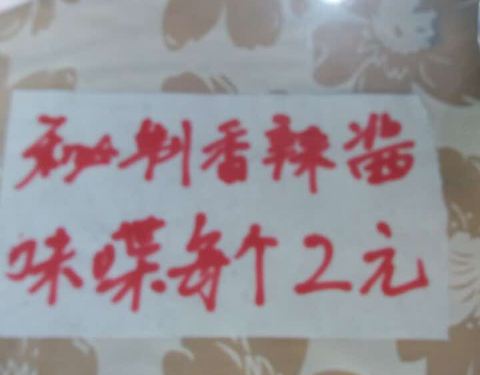 秘制香辣酱
味喋每个2元